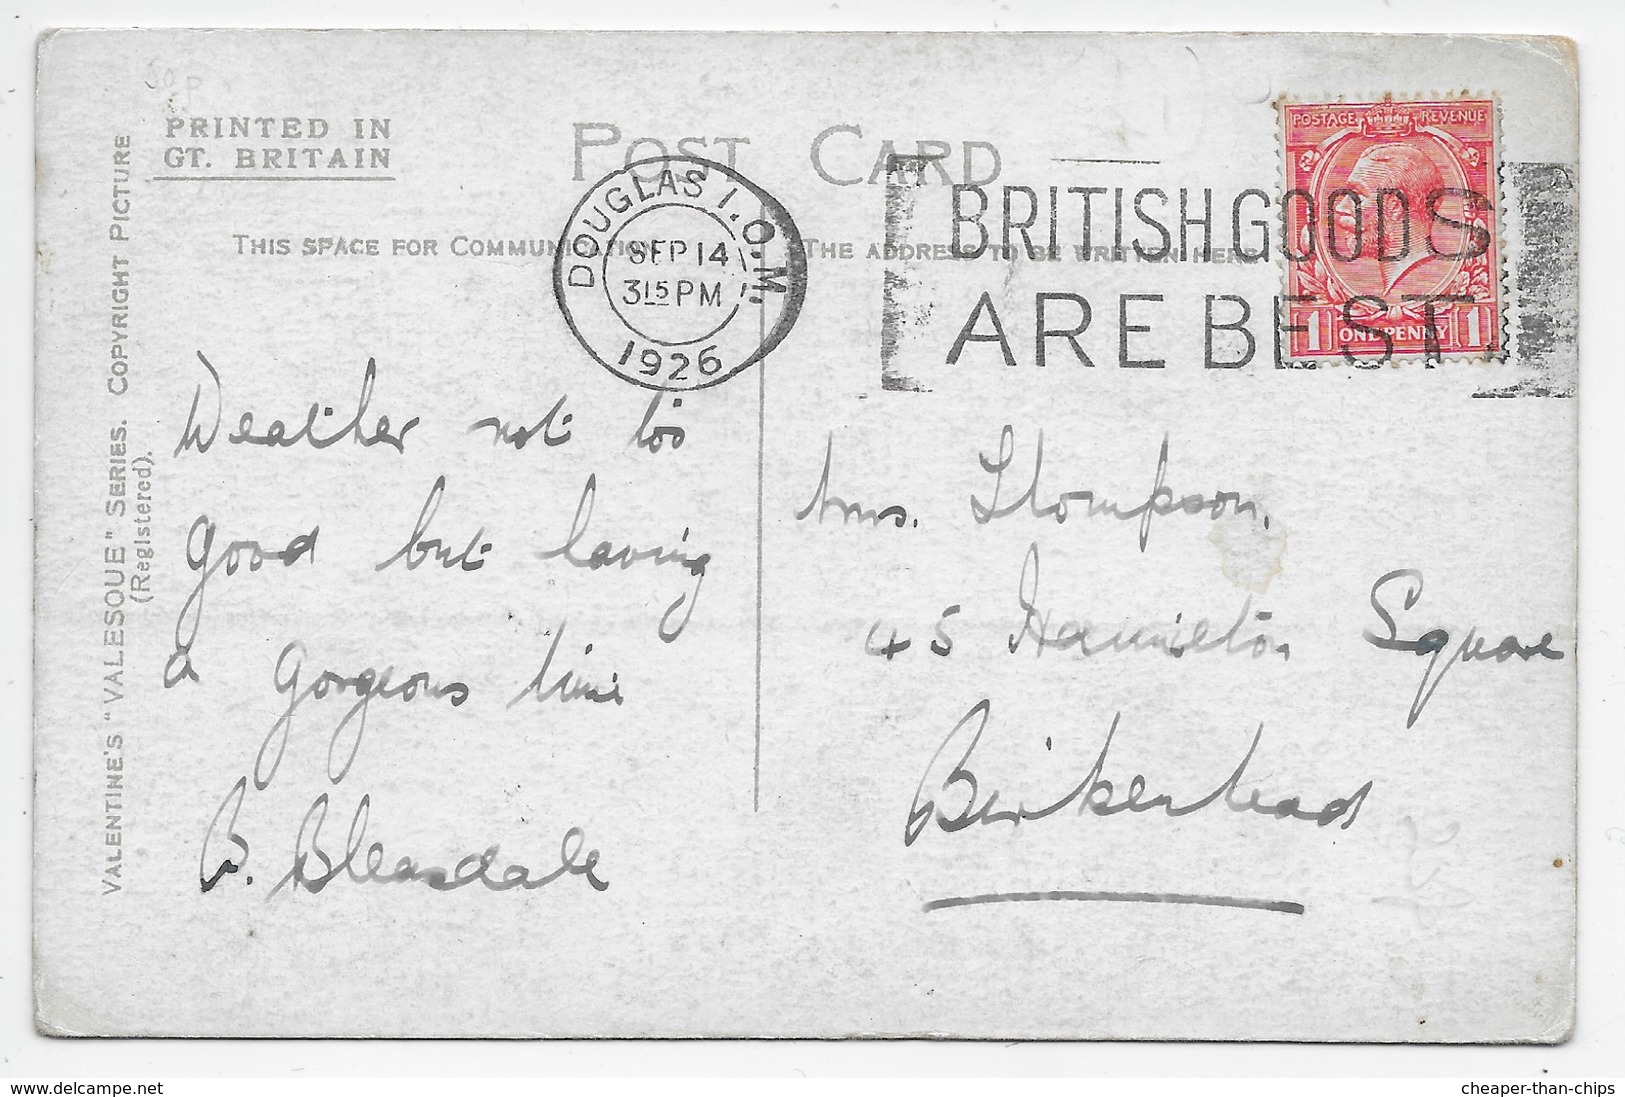 50P
PRINTED IN
GT. BRITAIN
POST CARD
THIS SPACE FOR COMMUNICATION
THE ADDRESS TO BE WRITTEN HERE
DOUGLAS I.O.M.
SEP 14
315 PM
1926
BRITISH GOODS
ARE BEST
POSTAGE REVENUE
1 ONE PENNY 1
VALENTINE'S "VALESQUE" SERIES. COPYRIGHT PICTURE
(Registered).
Weather not too
good but having
a gorgeous time
B. Bleasdale
Mrs. Thompson,
45 Hamilton Square
Birkenhead
www.delcampe.net
cheaper-than-chips